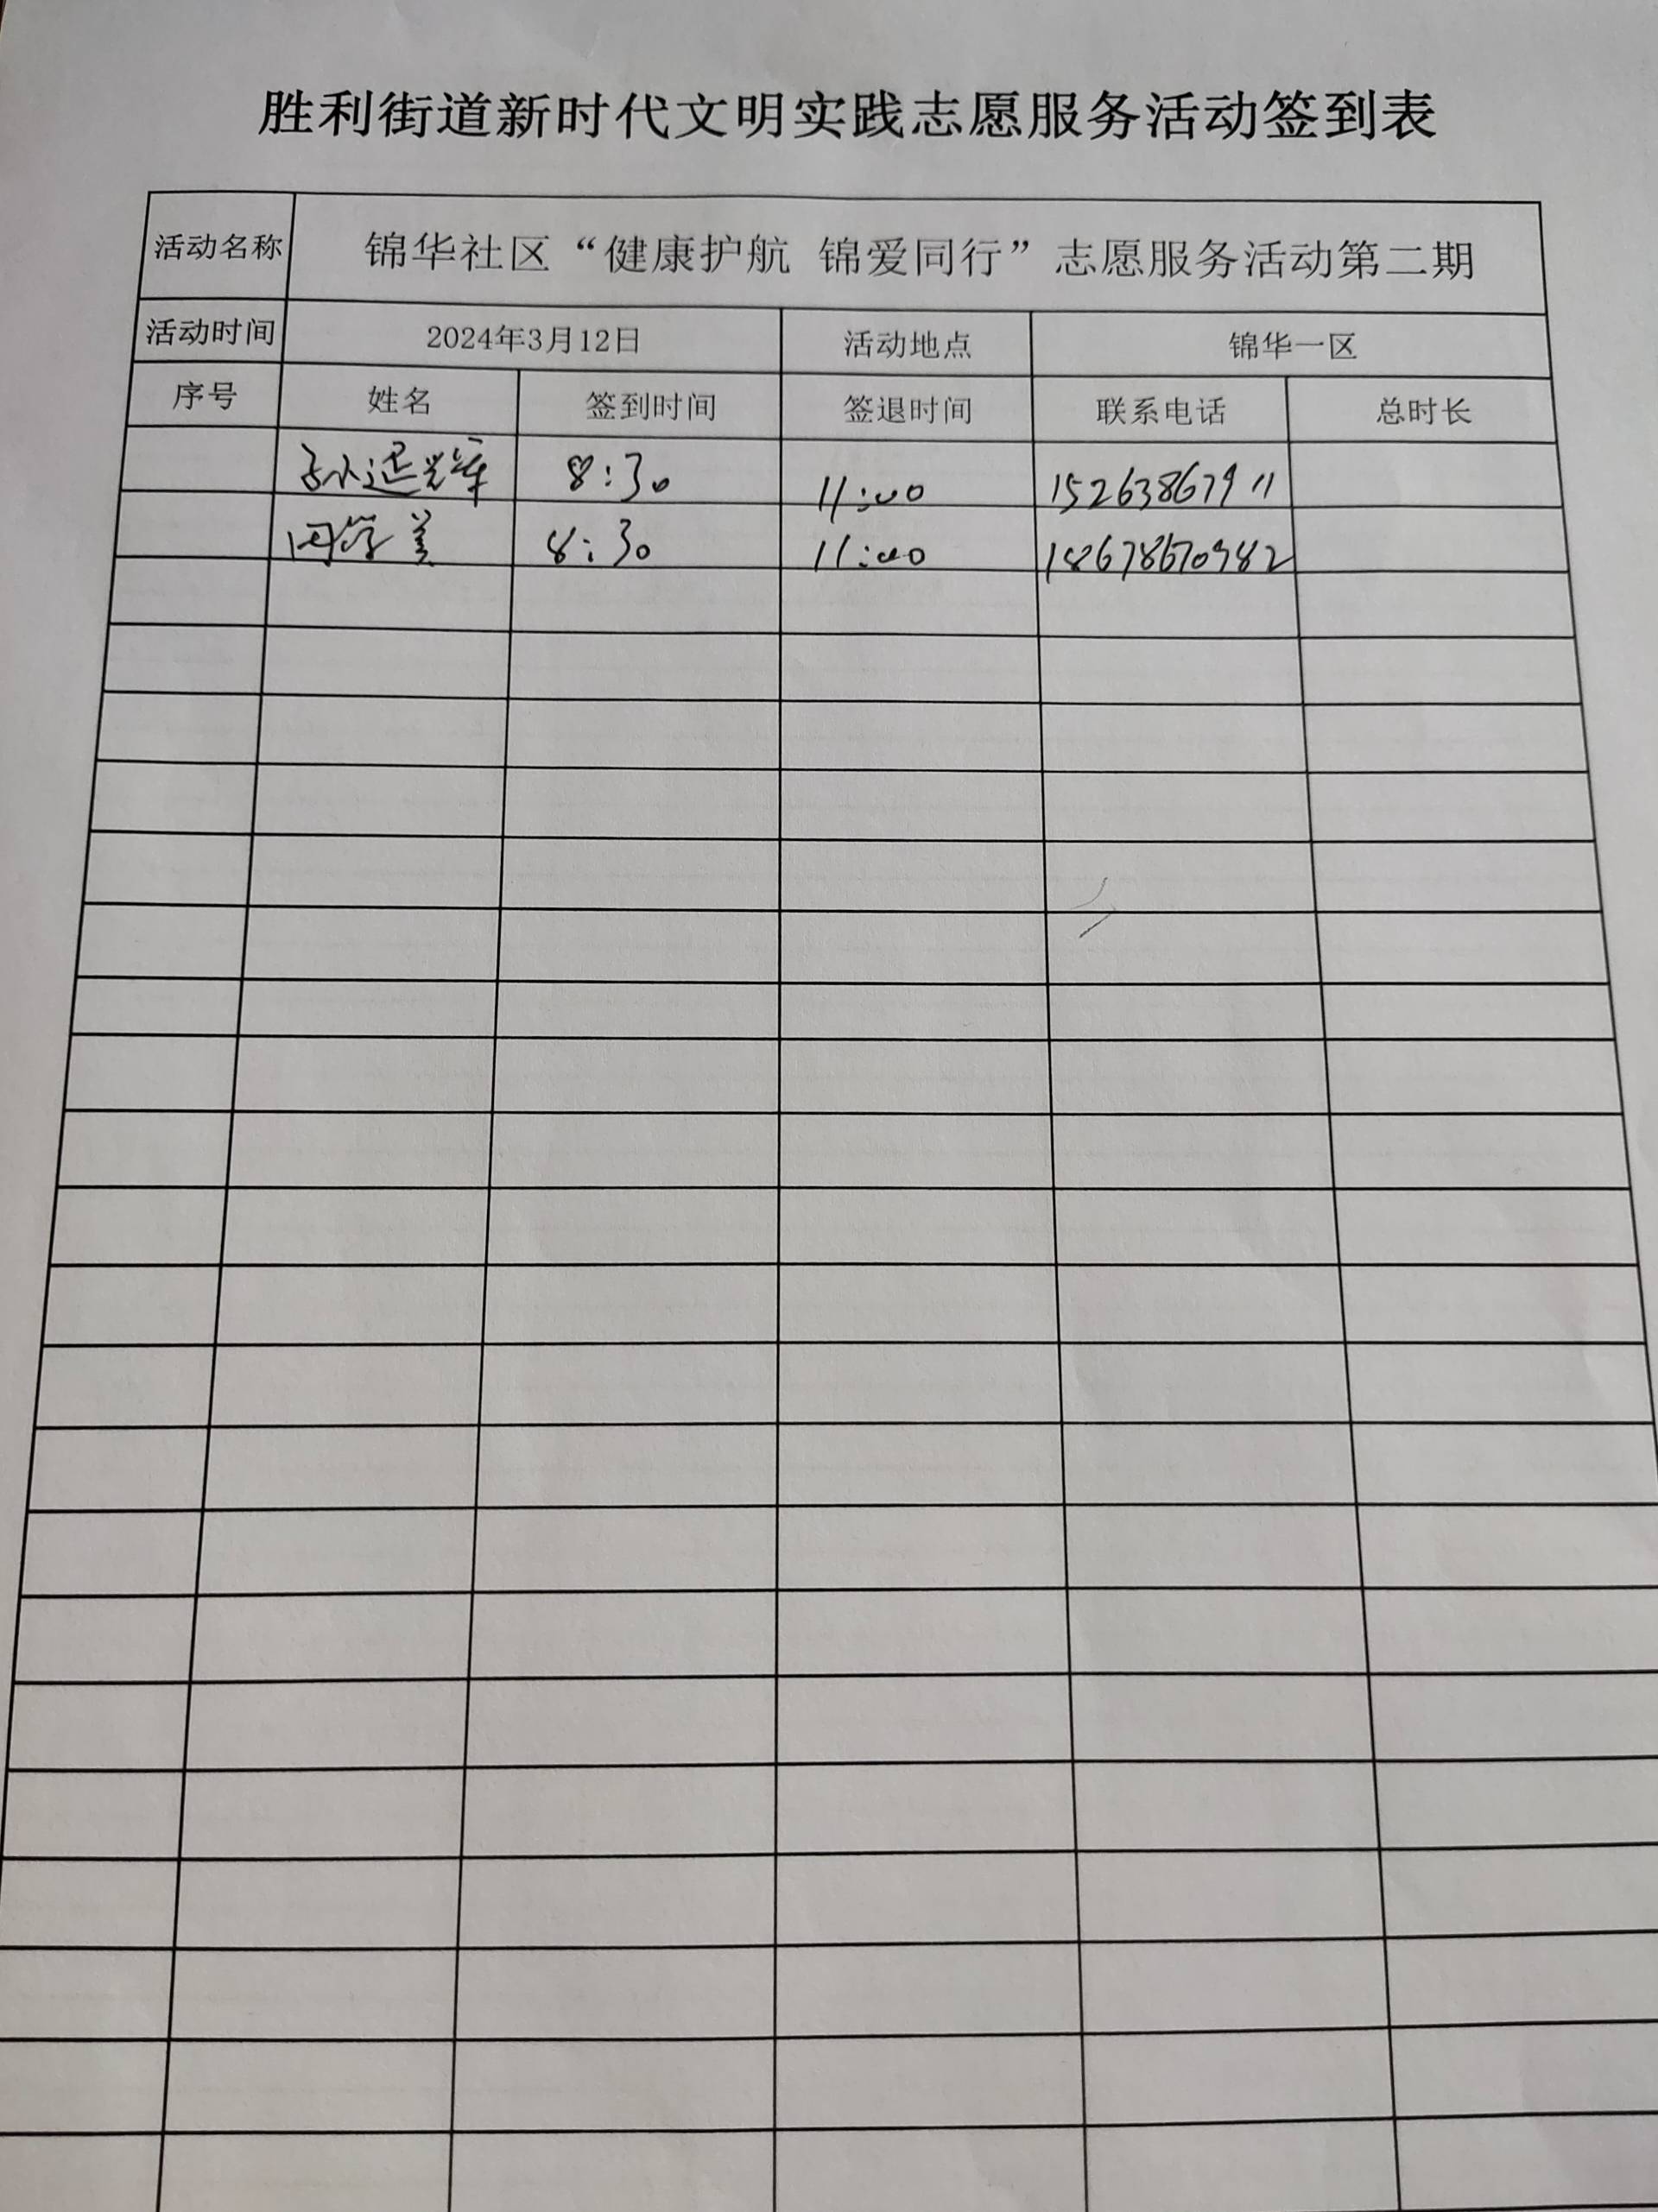 胜利街道新时代文明实践志愿服务活动签到表
活动名称 锦华社区“健康护航 锦爱同行”志愿服务活动第二期
活动时间 2024年3月12日 活动地点 锦华一区
序号 姓名 签到时间 签退时间 联系电话 总时长
8:30 11:00 15263867911
8:30 11:00 18678670982